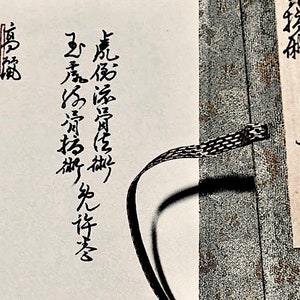 虎倒流骨法術
玉虎流骨指術免許巻